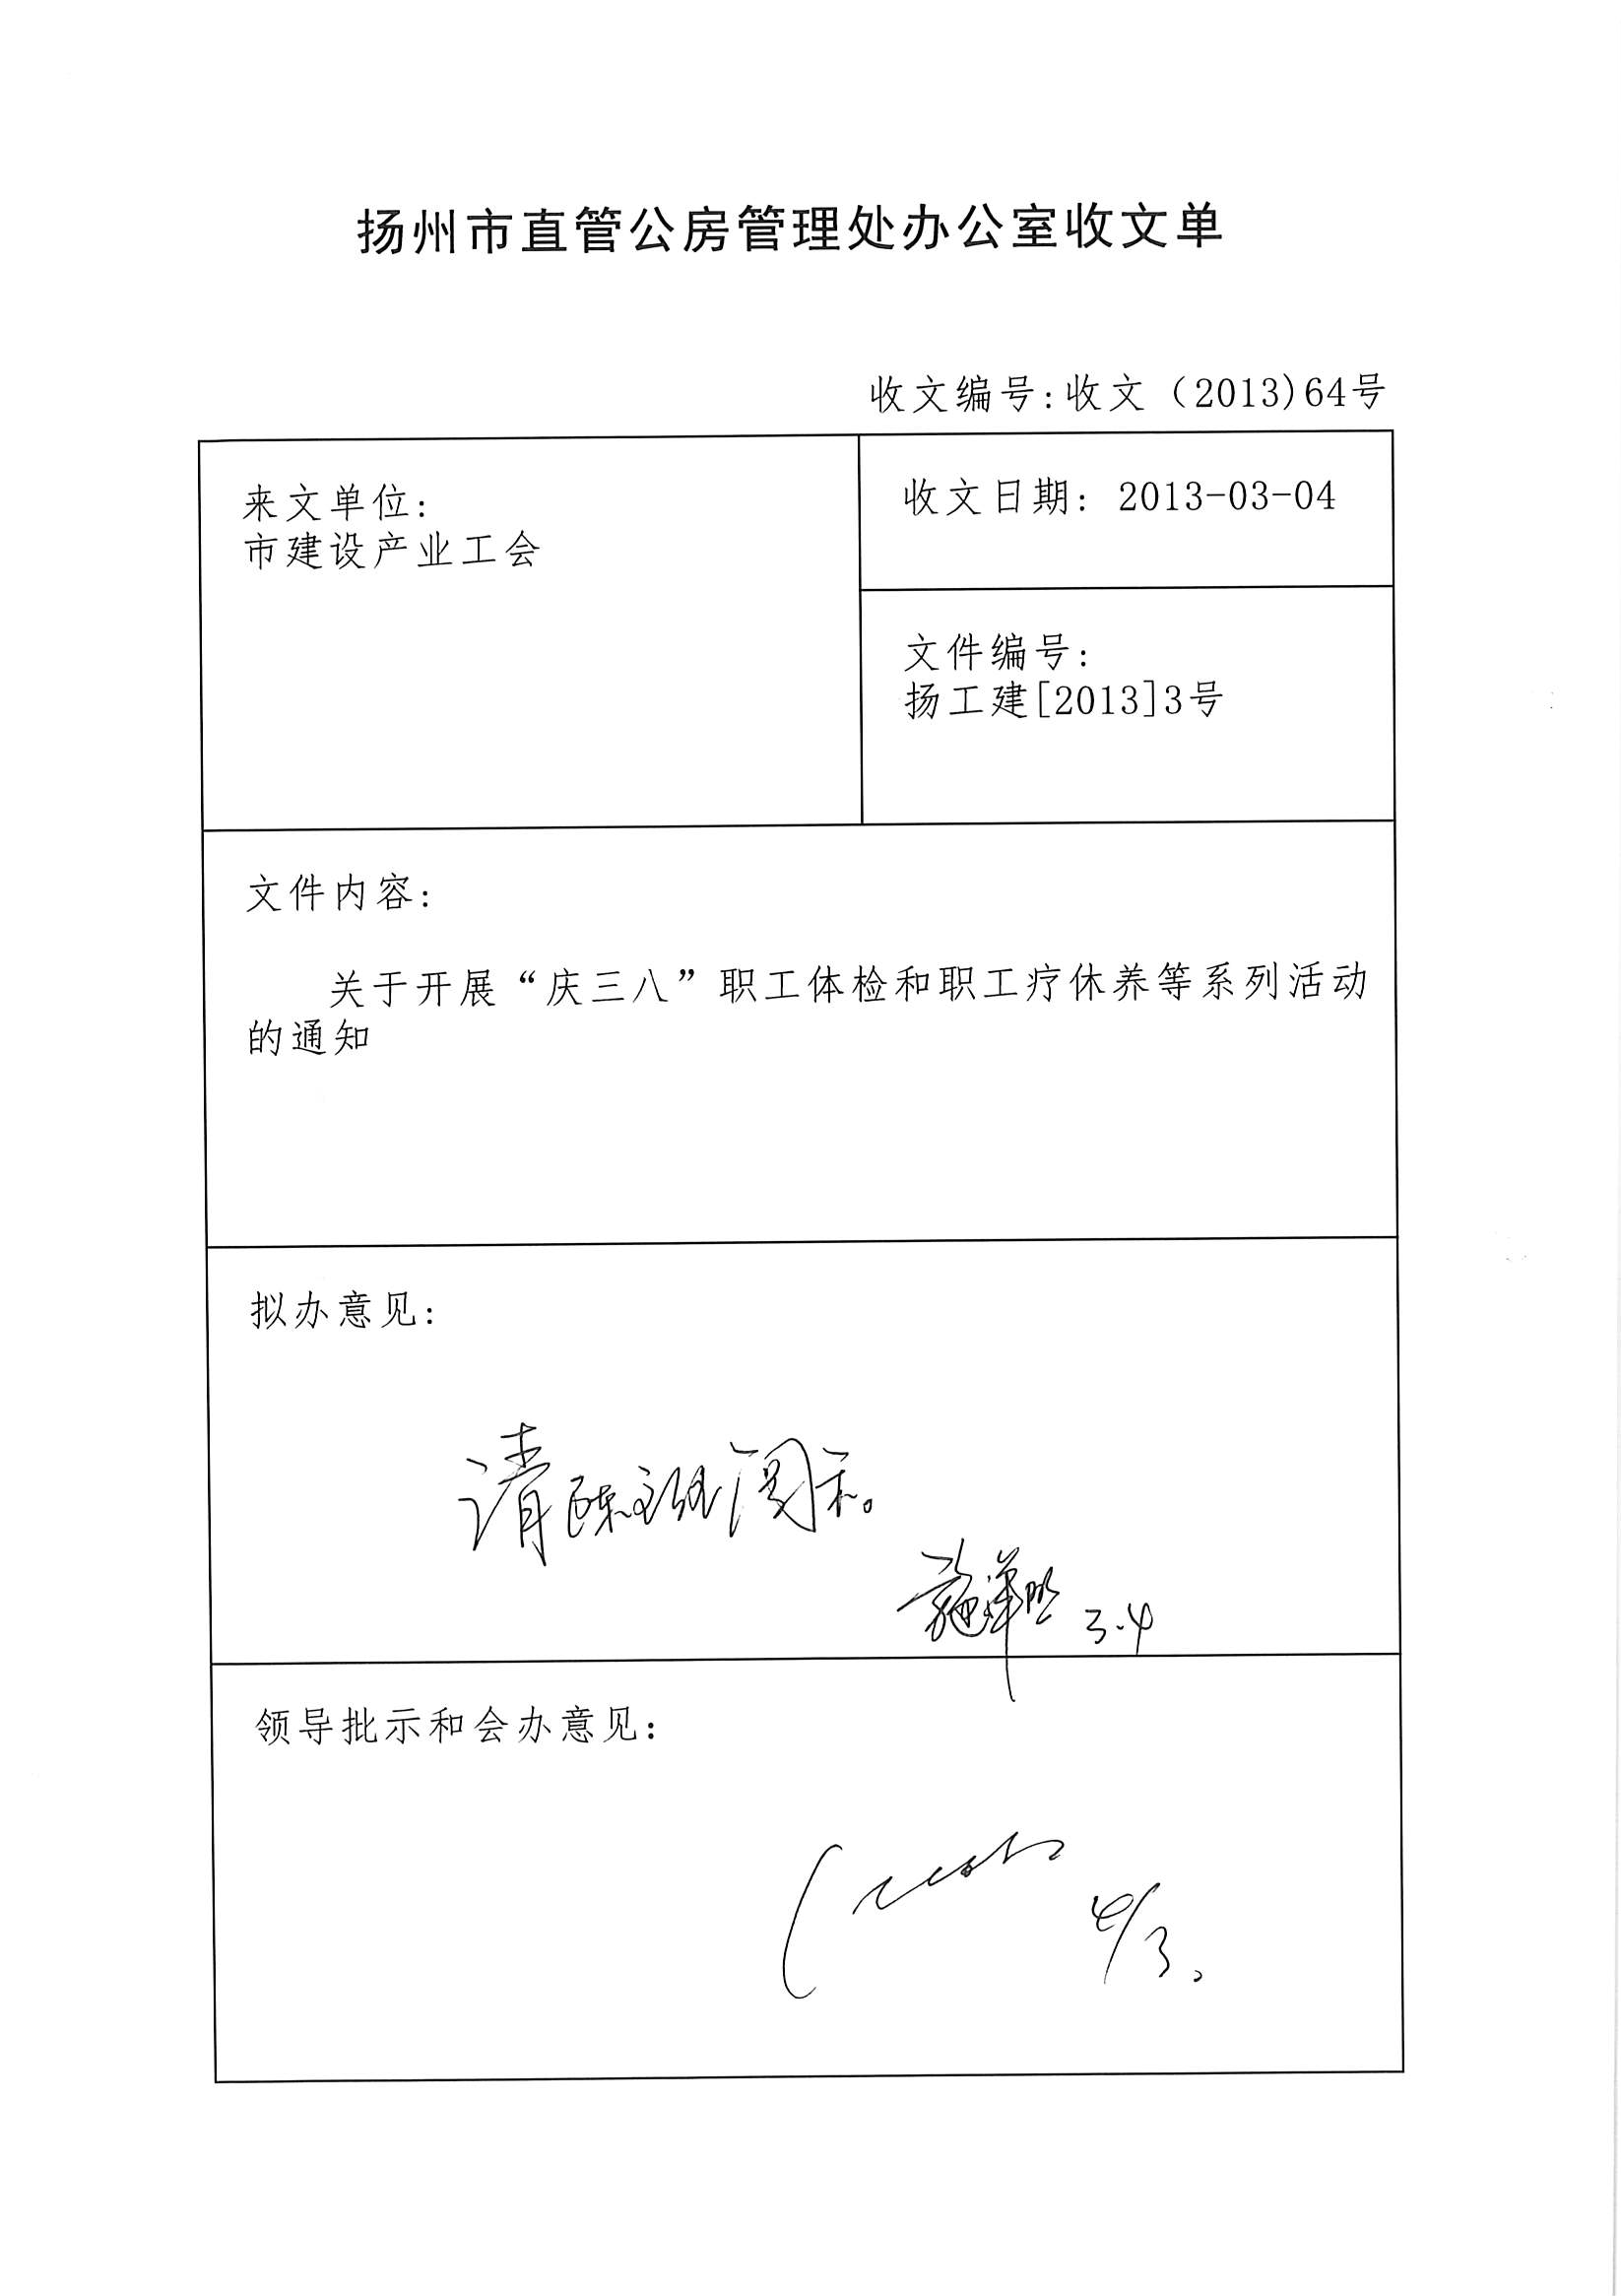 扬州市直管公房管理处办公室收文单
收文编号:收文（2013)64号
来文单位:
市建设产业工会
收文日期: 2013-03-04
文件编号:
扬工建[2013]3号
文件内容:
关于开展“庆三八”职工体检和职工疗休养等系列活动
的通知
拟办意见:
请陈主任阅示。
3.4
领导批示和会办意见:
4/3.